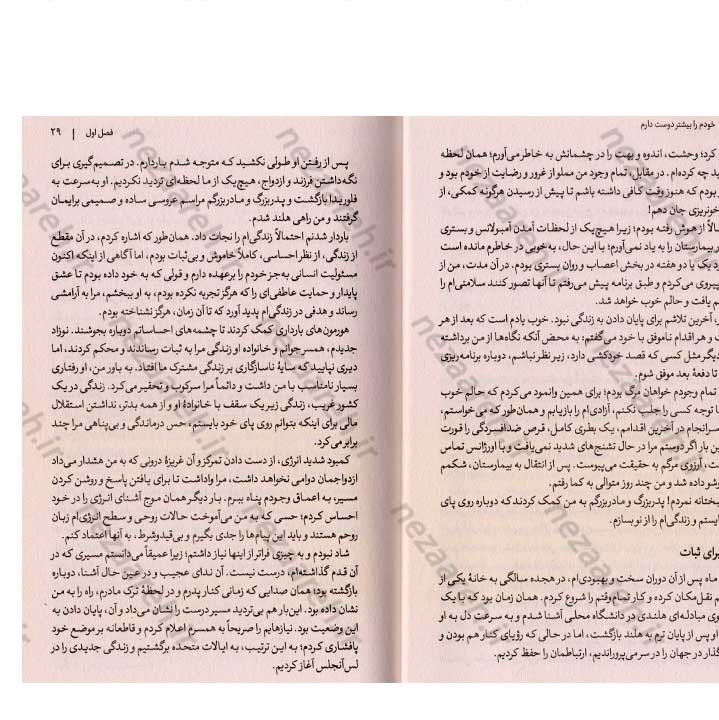 خودم را بیشتر دوست دارم
کرد؛ وحشت، اندوه و بهت را در چشمانش به خاطر می‌آورم؛ همان لحظه
ید چه کرده‌ام. در مقابل، تمام وجود من مملو از غرور و رضایت از خودم بود و
بودم که هنوز وقت کافی داشته باشم تا پیش از رسیدن هرگونه کمکی، از
خونریزی جان دهم!
الاً از هوش رفته بودم؛ زیرا هیچ‌یک از لحظات آمدن آمبولانس و بستری
ر بیمارستان را به یاد نمی‌آورم؛ با این حال، به‌خوبی در خاطرم مانده است
د یک یا دو هفته در بخش اعصاب و روان بستری بودم. در آن مدت، من از
پیروی می‌کردم و طبق برنامه پیش می‌رفتم تا آنها تصور کنند سلامتی‌ام را
م یافت و حالم خوب خواهد شد.
، آخرین تلاشم برای پایان دادن به زندگی نبود. خوب یادم است که بعد از هر
ت و هر اقدام ناموفق با خود می‌گفتم: به محض آنکه نگاه‌ها از من برداشته
دیگر مثل کسی که قصد خودکشی دارد، زیر نظر نباشم، دوباره برنامه‌ریزی
تا دفعهٔ بعد موفق شوم.
تمام وجودم خواهان مرگ بودم؛ برای همین وانمود می‌کردم که حالم خوب
ا توجه کسی را جلب نکنم، آزادی‌ام را بازیابم و همان‌طور که می‌خواستم،
سرانجام در آخرین اقدامم، یک بطری کامل، قرص ضدافسردگی را قورت
ین بار اگر دوستم مرا در حال تشنج‌های شدید نمی‌یافت و با اورژانس تماس
ت، آرزوی مرگم به حقیقت می‌پیوست. پس از انتقال به بیمارستان، شکمم
شو داده شد و من چند روز متوالی به کما رفتم.
بختانه نمردم! پدربزرگ و مادربزرگم به من کمک کردند که دوباره روی پای
ایستم و زندگی‌ام را از نو بسازم.
برای ثبات
ماه پس از آن دوران سخت و بهبودی‌ام، در هجده سالگی به خانهٔ یکی از
م نقل‌مکان کرده و کار تمام‌وقتم را شروع کردم. همان زمان بود که با یک
وی مبادله‌ای هلندی در دانشگاه محلی آشنا شدم و به سرعت دل به او
او پس از پایان ترم به هلند بازگشت، اما در حالی که رؤیای کنار هم بودن و
گذار در جهان را در سر می‌پروراندیم، ارتباطمان را حفظ کردیم.
فصل اول | ۲۹
پس از رفتن او طولی نکشید که متوجه شدم باردارم. در تصمیم‌گیری برای
نگه داشتن فرزند و ازدواج، هیچ‌یک از ما لحظه‌ای تردید نکردیم. او به سرعت به
فلوریدا بازگشت و پدربزرگ و مادربزرگم مراسم عروسی ساده و صمیمی برایمان
گرفتند و من راهی هلند شدم.
باردار شدنم احتمالاً زندگی‌ام را نجات داد. همان‌طور که اشاره کردم، در آن مقطع
از زندگی، از نظر احساسی، کاملاً خاموش و بی‌ثبات بودم، اما آگاهی از اینکه اکنون
مسئولیت انسانی به‌جز خودم را برعهده دارم و قولی که به خود داده بودم تا عشق
پایدار و حمایت عاطفی‌ای را که هرگز تجربه نکرده بودم، به او ببخشم، مرا به آرامشی
رساند و هدفی در زندگی‌ام پدید آورد که تا آن زمان، هرگز نشناخته بودم.
هورمون‌های بارداری کمک کردند تا چشمه‌های احساساتم دوباره بجوشند. نوزاد
جدیدم، همسر جوانم و خانواده او زندگی مرا به ثبات رساندند و محکم کردند، اما
دیری نپایید که سایهٔ ناسازگاری بر زندگی مشترک ما افتاد. به باور من، او رفتاری
بسیار نامتناسب با من داشت و دائماً مرا سرکوب و تحقیر می‌کرد. زندگی در یک
کشور غریب، زندگی زیر یک سقف با خانوادهٔ او و از همه بدتر، نداشتن استقلال
مالی برای اینکه بتوانم روی پای خود بایستم، حس درماندگی و بی‌پناهی مرا چند
برابر می‌کرد.
کمبود شدید انرژی، از دست دادن تمرکز و آن غریزهٔ درونی که به من هشدار می‌داد
ازدواجمان دوامی نخواهد داشت، مرا واداشت تا برای یافتن پاسخ و روشن کردن
مسیر، به اعماق وجودم پناه ببرم. بار دیگر همان موج آشنای انرژی را در خود
احساس کردم؛ حسی که به من می‌آموخت حالات روحی و سطح انرژی‌ام زبان
روحم هستند و باید این پیام‌ها را جدی بگیرم و بی‌قیدوشرط، به آنها اعتماد کنم.
شاد نبودم و به چیزی فراتر از اینها نیاز داشتم؛ زیرا عمیقاً می‌دانستم مسیری که در
آن قدم گذاشته‌ام، درست نیست. آن ندای عجیب و در عین حال آشنا، دوباره
بازگشته بود؛ همان صدایی که زمانی کنار پدرم و در لحظهٔ ترک مادرم، راه را به من
نشان داده بود. این‌بار هم بی‌تردید مسیر درست را نشان می‌داد و آن، پایان دادن به
این وضعیت بود. نیازهایم را صریحاً به همسرم اعلام کردم و قاطعانه بر موضع خود
پافشاری کردم؛ به این ترتیب، به ایالات متحده برگشتیم و زندگی جدیدی را در
لس‌آنجلس آغاز کردیم.